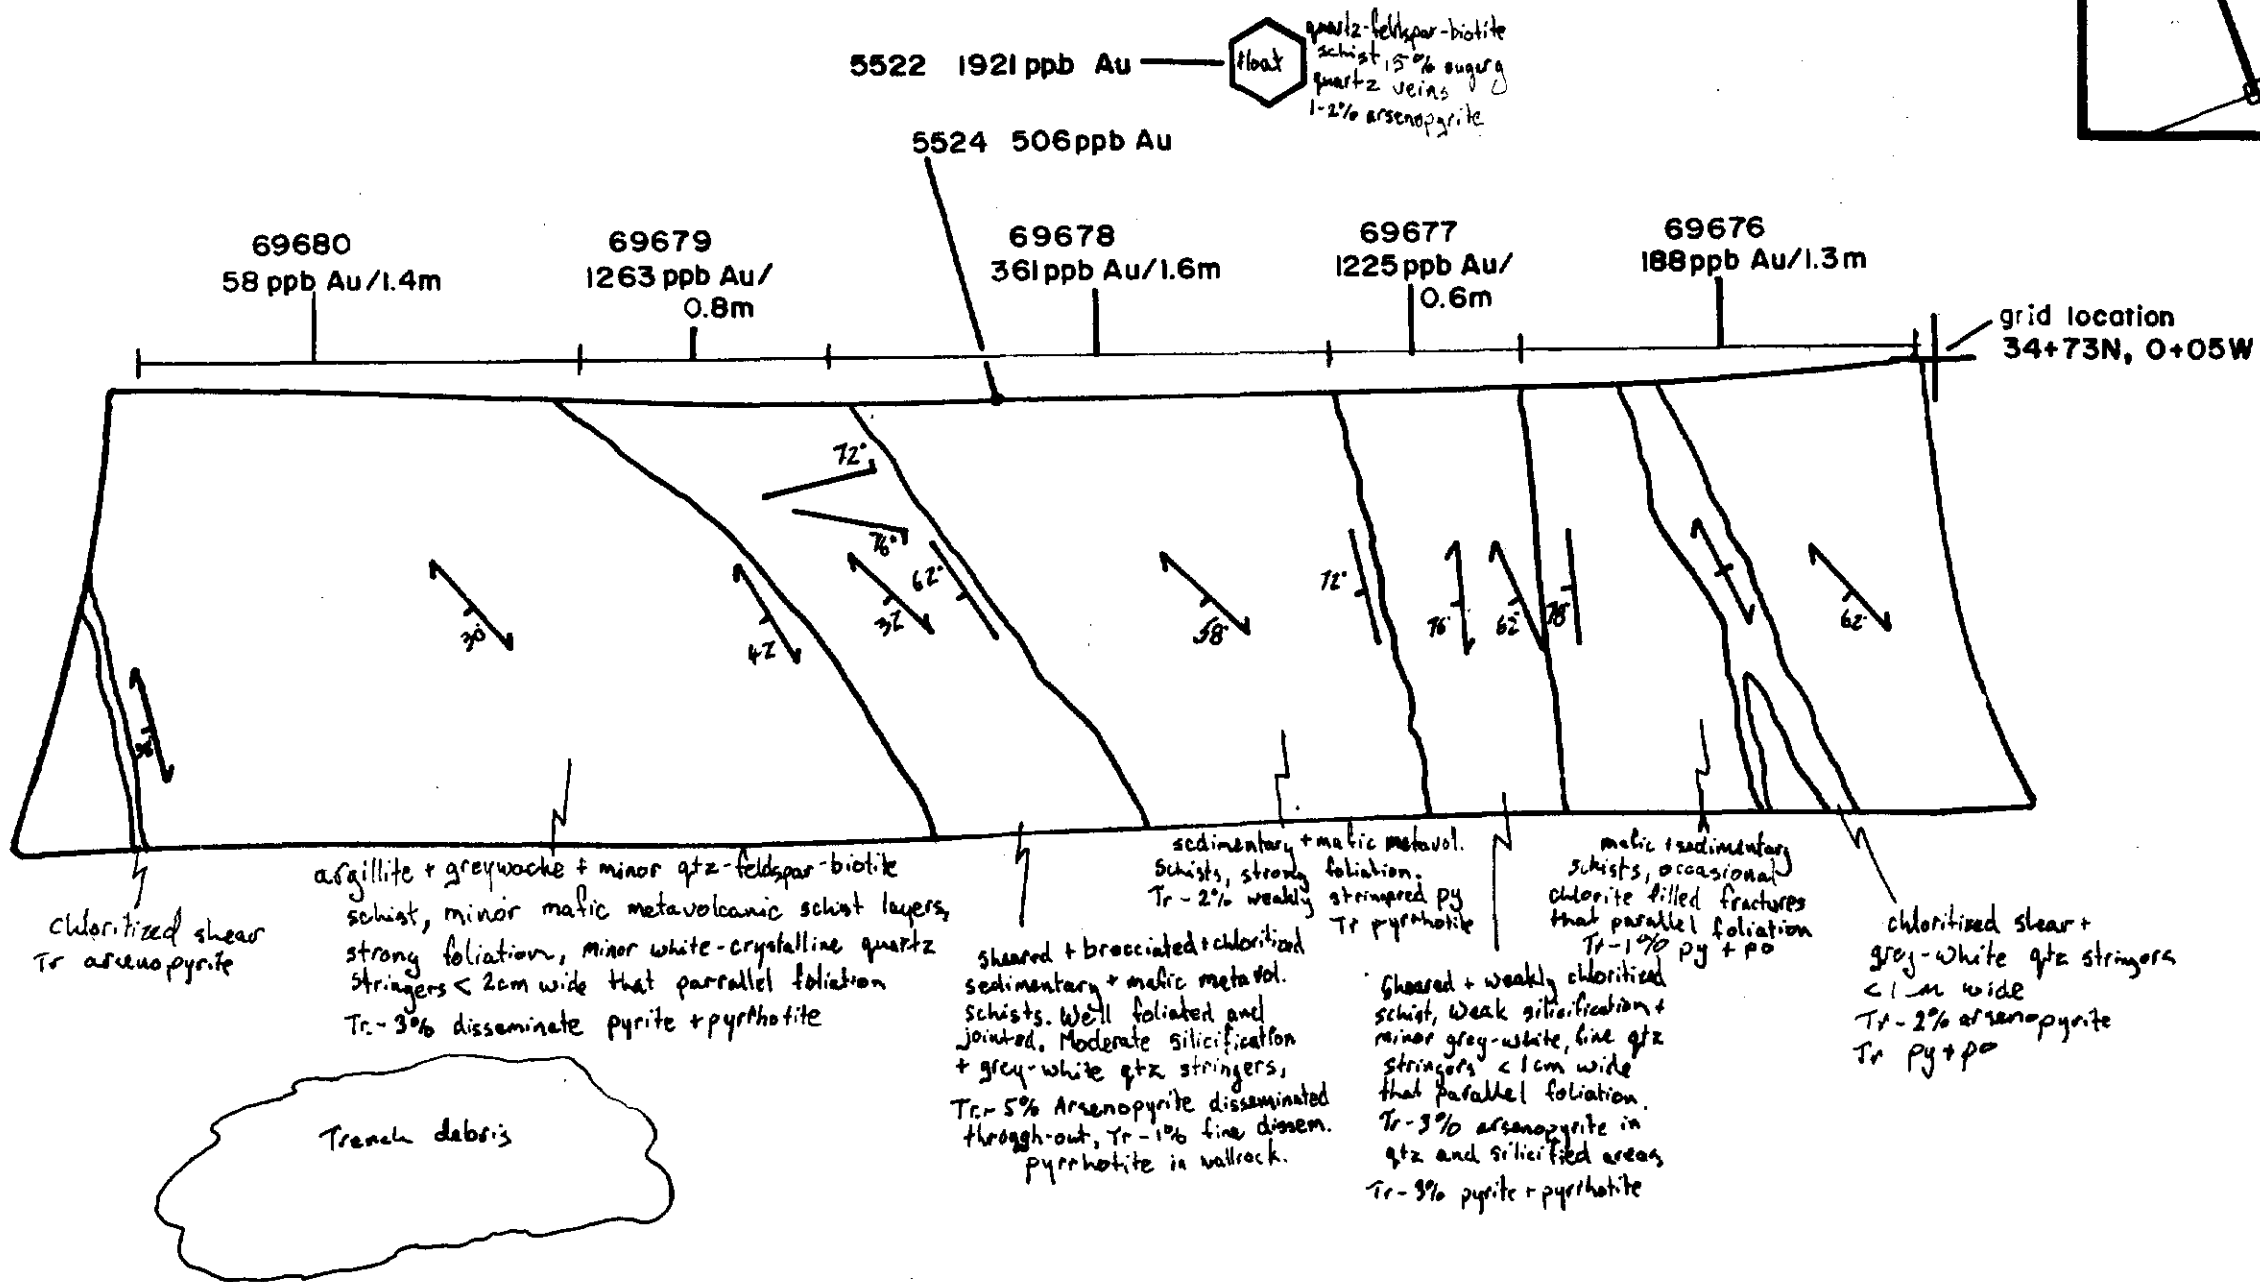 5522 1921 ppb Au
float
quartz-feldspar-biotite
schist, 5% sugary
quartz veins
1-2% arsenopyrite
5524 506ppb Au
69680
58 ppb Au/1.4m
69679
1263 ppb Au/
0.8m
69678
361ppb Au/1.6m
69677
1225ppb Au/
0.6m
69676
188ppb Au/1.3m
grid location
34+73N, 0+05W
72°
76°
62°
30
42
32
58
72°
76
62
78°
62
chloritized shear
Tr arsenopyrite
argillite + greywacke + minor qtz-feldspar-biotite
schist, minor mafic metavolcanic schist layers,
strong foliation, minor white-crystalline quartz
stringers < 2cm wide that parrallel foliation
Tr.-3% disseminate pyrite + pyrrhotite
sheared + brecciated + chloritized
sedimentary + mafic metavol.
schists. Well foliated and
jointed. Moderate silicification
+ grey-white qtz stringers,
Tr.-5% Arsenopyrite disseminated
through-out, Tr-1% fine dissem.
pyrrhotite in wallrock.
sedimentary + mafic metavol.
schists, strong foliation.
Tr-2% weakly stringered py
Tr pyrrhotite
sheared + weakly chloritized
schist, weak silicification +
minor grey-white, fine qtz
stringers <1cm wide
that parallel foliation.
Tr-3% arsenopyrite in
qtz and silicified areas
Tr-3% pyrite + pyrrhotite
mafic + sedimentary
schists, occasional
chlorite filled fractures
that parallel foliation
Tr-1% py + po
chloritized shear +
grey-white qtz stringers
wide
Tr-2% arsenopyrite
Tr py + po
Trench debris